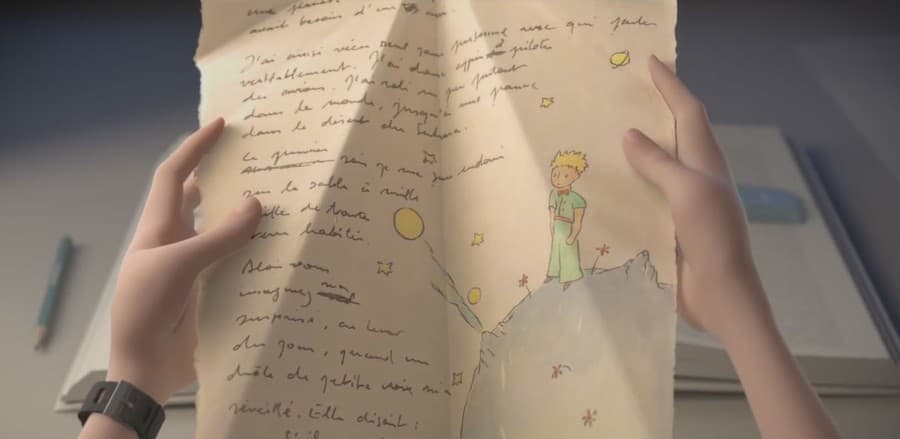 avant besoin d'un
J'ai ainsi vécu seul, sans personne avec qui parler
véritablement. J'ai donc appris à piloter
des avions. J'ai volé un peu partout
dans le monde, jusqu'à une panne
dans le désert du Sahara.
Le premier
soir je me suis endormi
sur le sable à mille
mille de toute
terre habitée.
Alors vous
imaginez ma
surprise, au lever
du jour, quand une
drôle de petite voix m'a
réveillé. Elle disait :